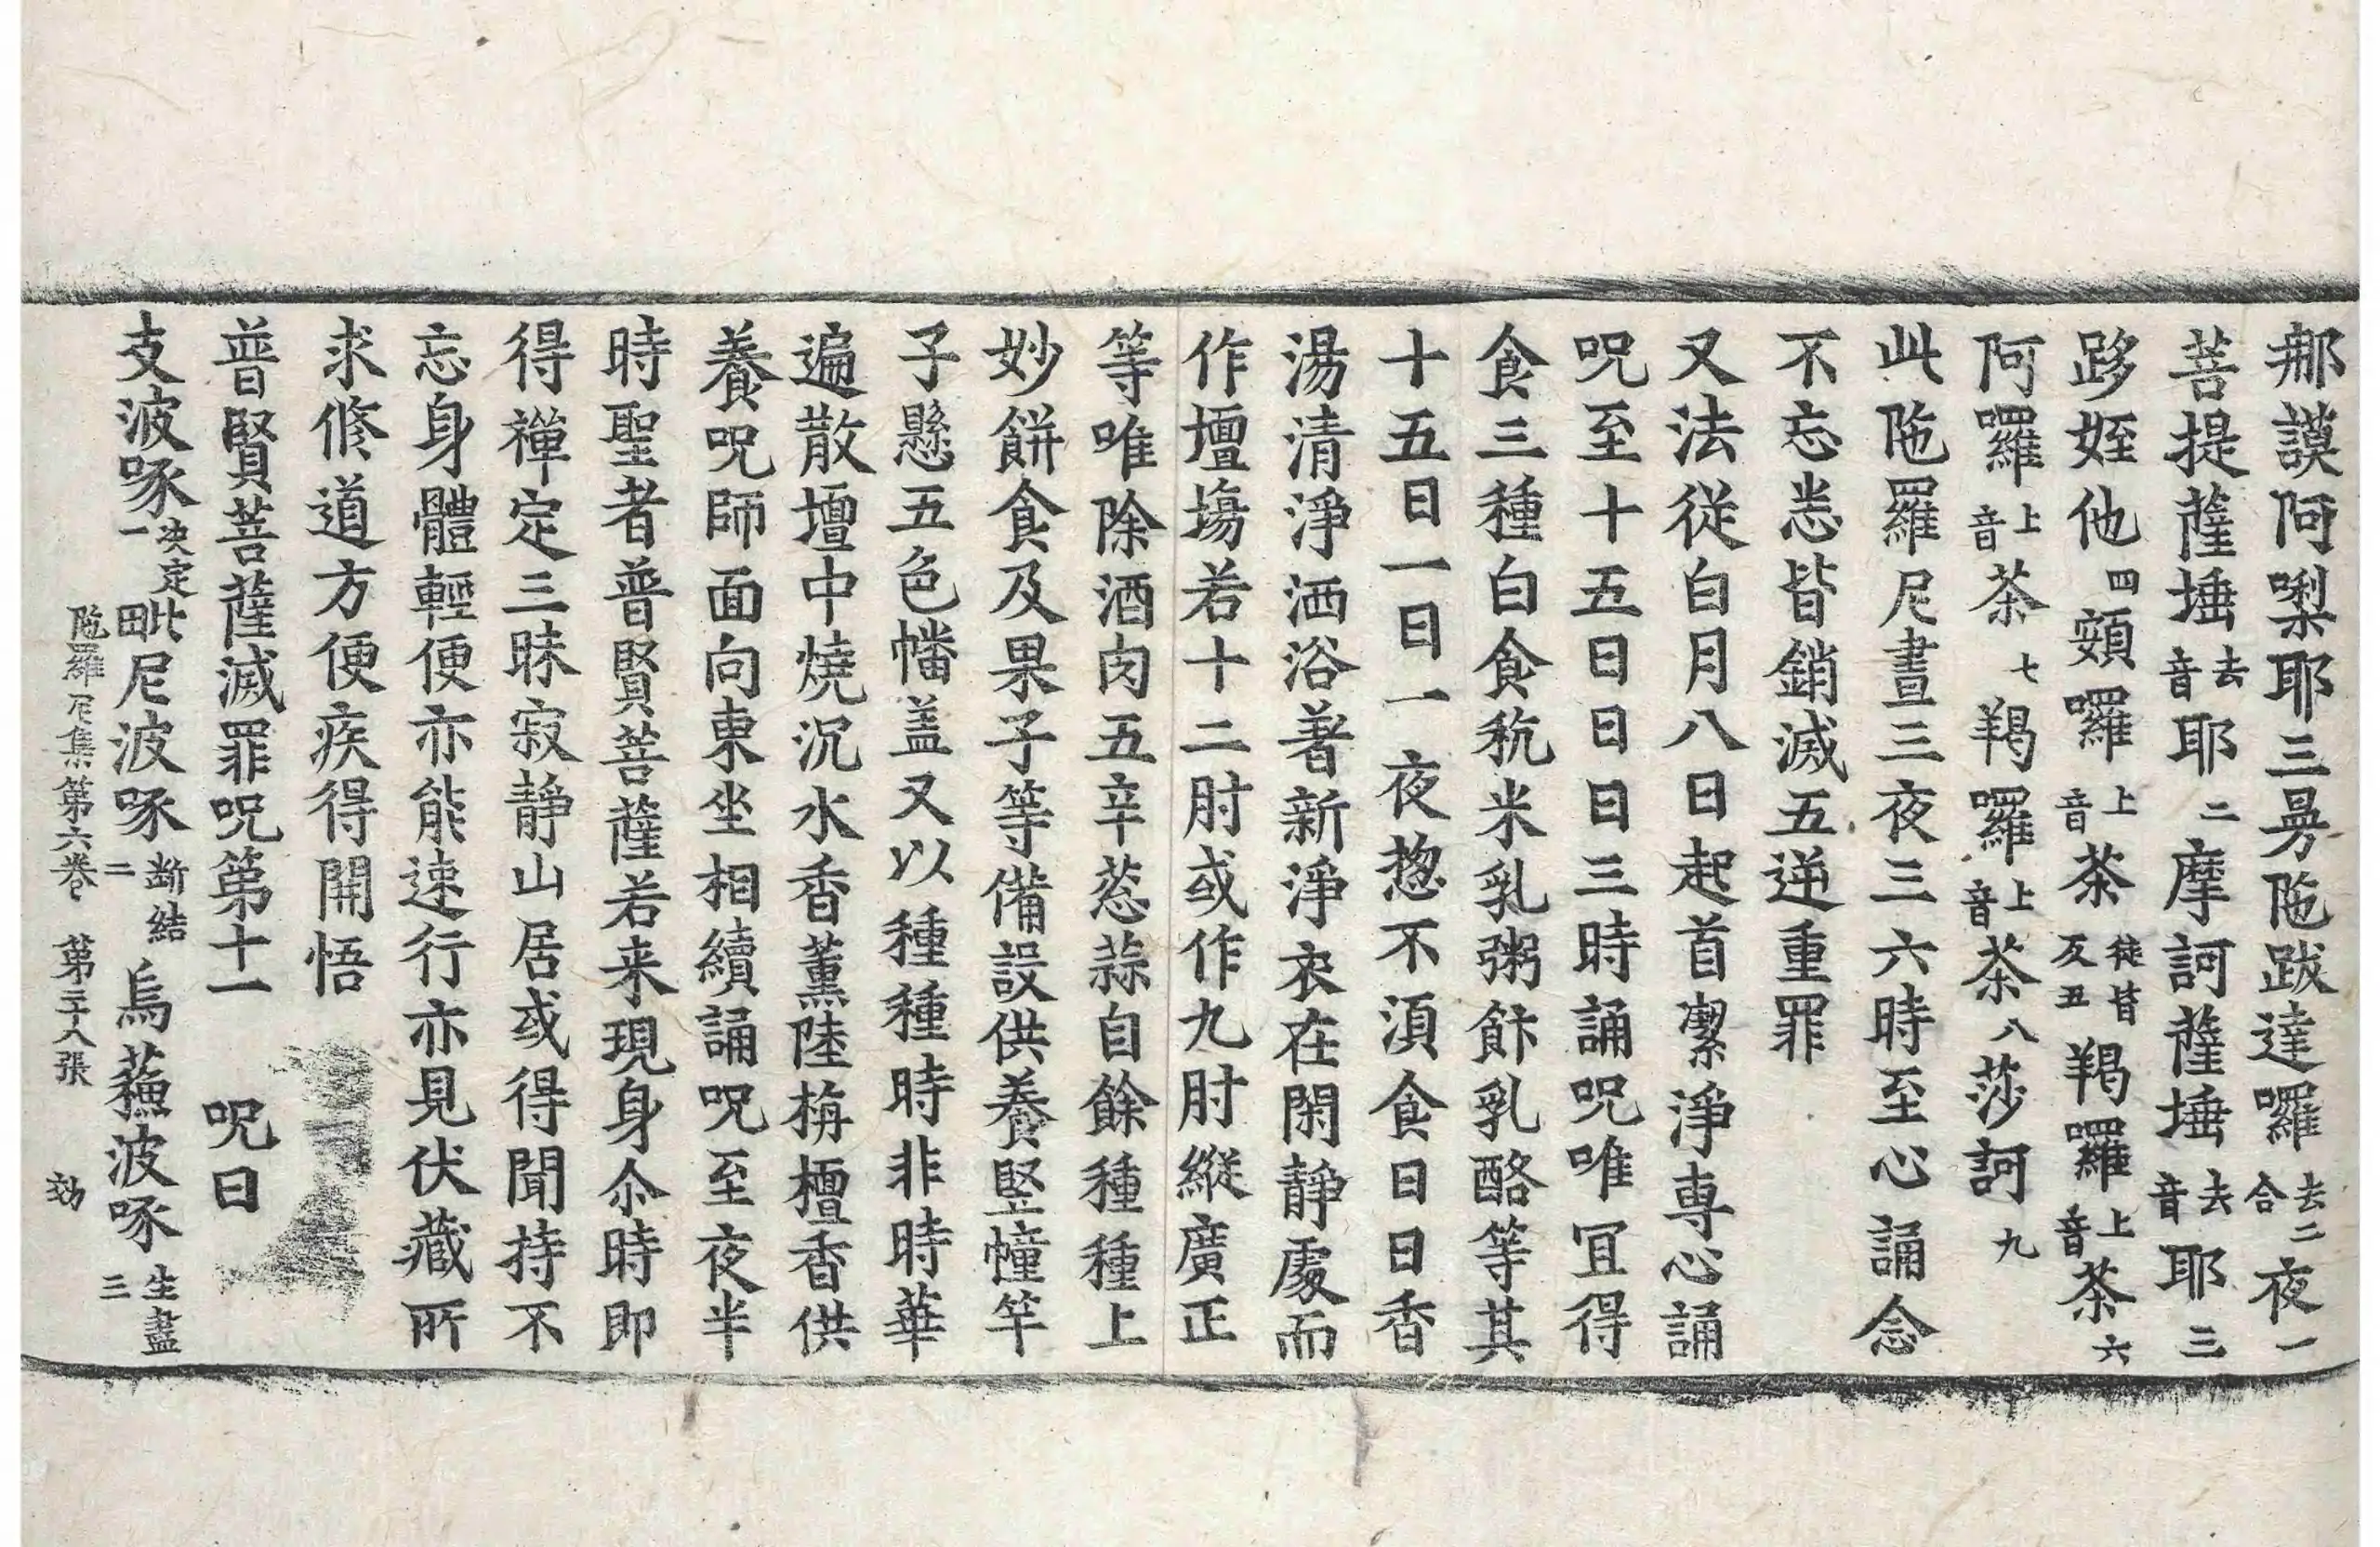 那謨阿㗚耶三曼陁跋達囉去二合夜一
菩提薩埵去音耶二摩訶薩埵去音耶三
跢姪他四頞囉上音荼徒皆反五羯囉上音荼六
阿囉上音荼七羯囉上音荼八莎訶九
此陁羅尼晝三夜三六時至心誦念
不忘悉皆銷滅五逆重罪
又法從白月八日起首潔淨專心誦
呪至十五日日日三時誦呪唯冝得
食三種白食秔米乳粥飰乳酪等其
十五日一日一夜惣不湏食日日香
湯清淨洒浴著新淨衣在閑靜處而
作壇塲若十二肘或作九肘縱廣正
等唯除酒肉五辛葱蒜自餘種種上
妙餅食及果子等備設供養竪幢竿
子懸五色幡盖又以種種時非時華
遍散壇中燒沉水香薰陸栴檀香供
養呪師面向東坐相續誦呪至夜半
時聖者普賢菩薩若来現身尒時即
得禪定三昧寂靜山居或得聞持不
忘身體輕便亦能速行亦見伏藏所
求修道方便疾得開悟
普賢菩薩滅罪呪第十一 呪曰
支波啄决定一毗尼波啄断結二烏蘓波啄生盡三
陁羅尼集第六卷 第二十八張 効